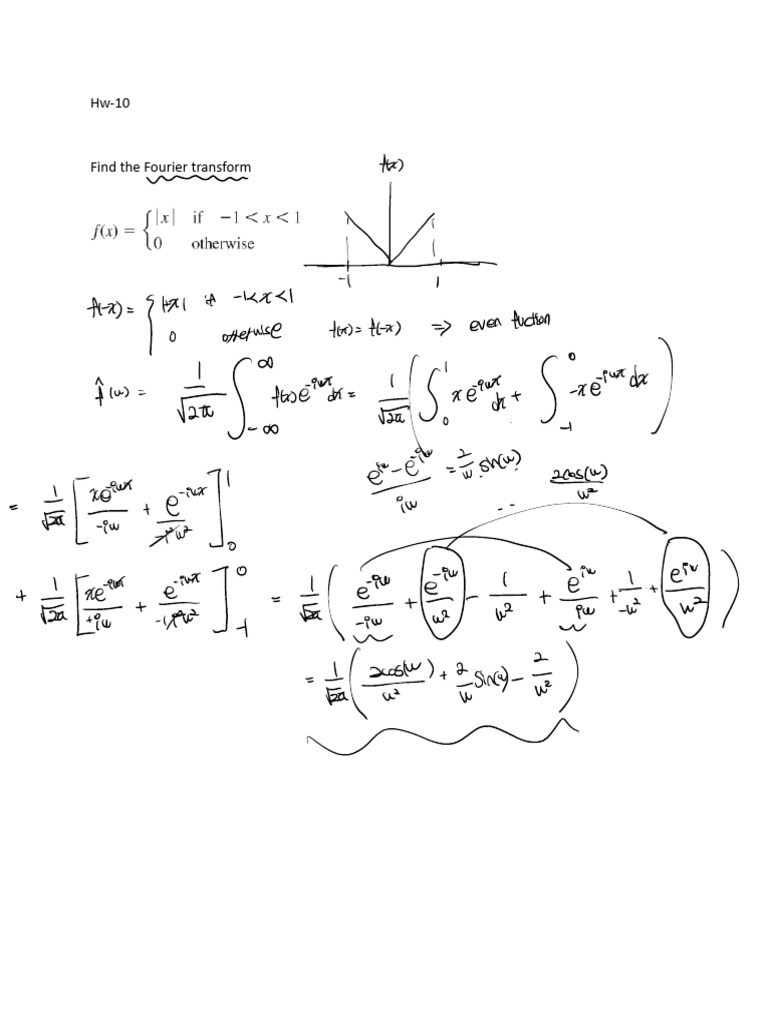 Hw-10
Find the Fourier transform
f(x)
f(x) = { |x| if −1 < x < 1
0 otherwise
-1 1
f(-x) = { |-x| if -1<x<1
0 otherwise f(x) = f(-x) => even fuction
f̂(w) = 1/√2π ∫_{-∞}^{∞} f(x)e^{-iwx}dx = 1/√2π ( ∫_0^1 xe^{-iwx}dx + ∫_{-1}^0 -xe^{-iwx}dx )
(e^{iw} - e^{-iw})/iw = 2/w sin(w) 2cos(w)/w²
= 1/√2π [ xe^{-iwx}/-iw + e^{-iwx}/-i²w² ]_0^1
+ 1/√2π [ xe^{-iwx}/+iw + e^{-iwx}/-1w² ]_{-1}^0 = 1/√2π ( e^{-iw}/-iw + e^{-iw}/w² - 1/w² + e^{iw}/iw + 1/-w² + e^{iw}/w² )
= 1/√2π ( 2cos(w)/w² + 2/w sin(w) - 2/w² )